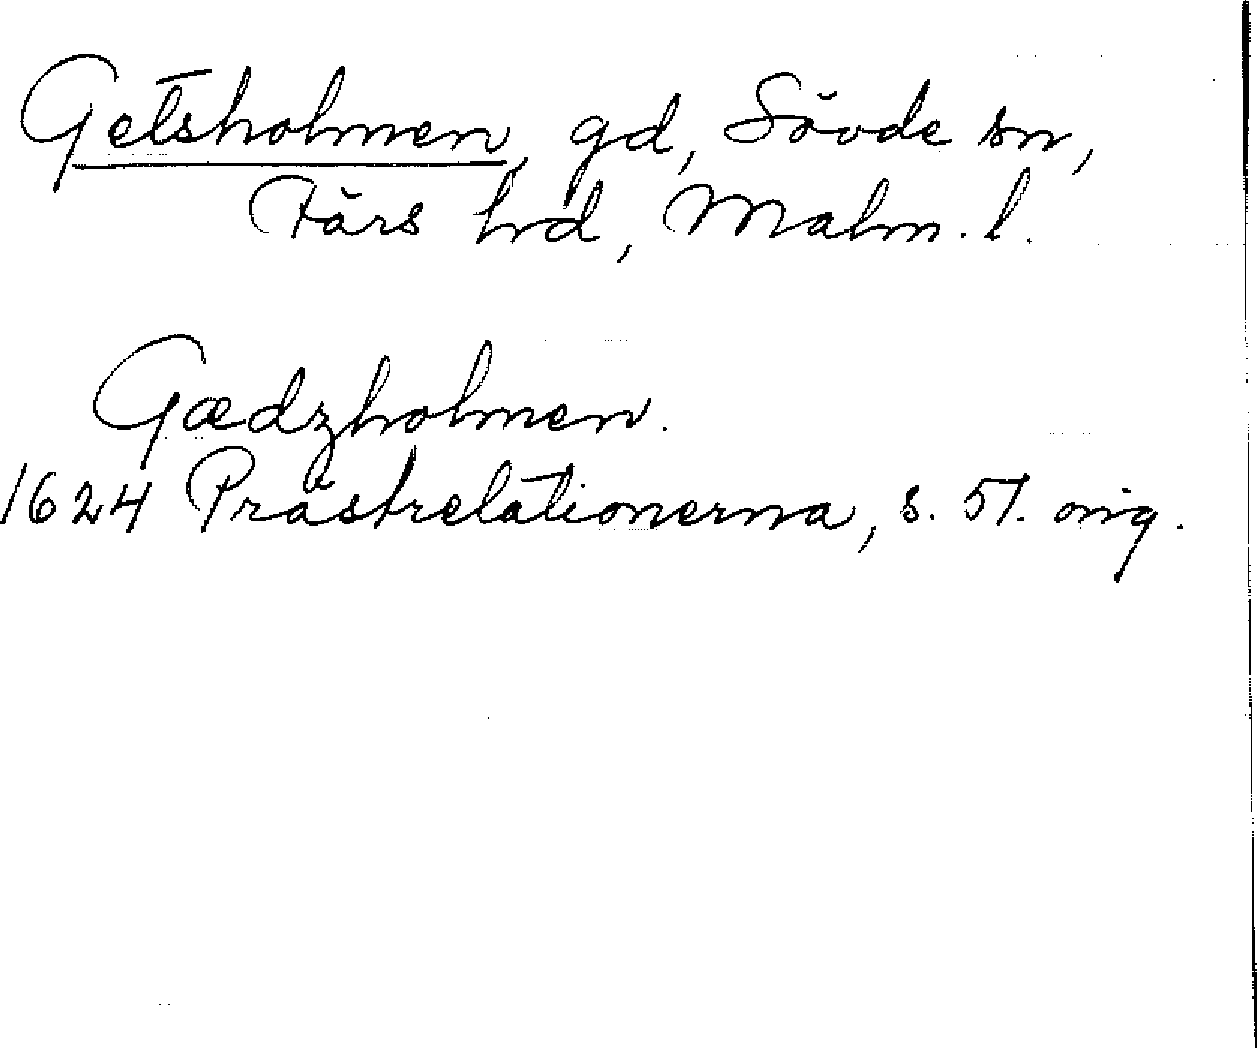 Getsholmen, gd, Sövde sn,
Färs hd, Malm. l.
Gædzholmen.
1624 Prästrelationerna, s. 51. orig.